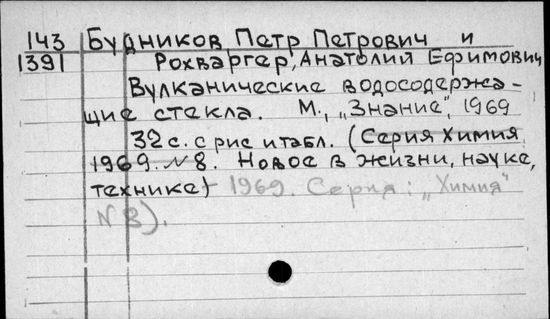 143 Будников Петр Петрович и
1391 Рохваргер, Анатолий Ефимович
Вулканические водосодержа-
щие стекла. М., „Знание", 1969
32 с. с рис и табл. (Серия Химия
1969. N 8. Новое в жизни, науке,
технике) 1969. Серия: „Химия"
N 8).